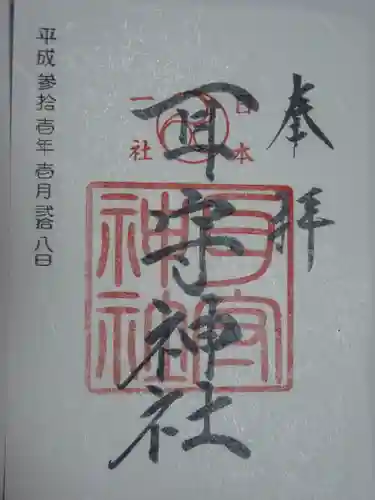 奉拝
日本
一社
耳守神社
耳守
神社
平成参拾壱年壱月弐拾八日